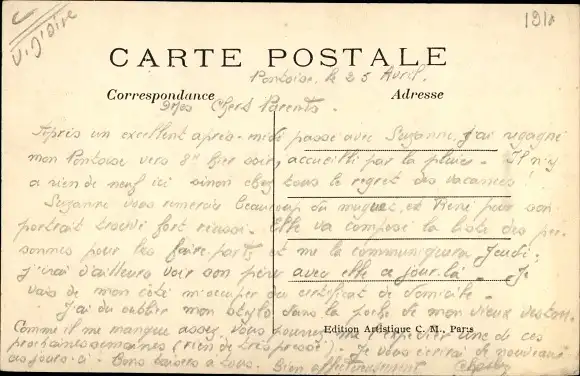 V. d'Oise
1910
CARTE POSTALE
Pontoise, le 25 Avril.
Correspondance Adresse
Mes Chers Parents.
Après un excellent après-midi passé avec Suzanne, j'ai regagné
mon Pontoise vers 8h hier soir, accueilli par la pluie. Il n'y
a rien de neuf ici sinon chez tous le regret des vacances
Suzanne vous remercie beaucoup du muguet, et René pour son
portrait trouvé fort réussi. Elle va composer la liste des per-
sonnes pour les faire-parts et me la communiquera Jeudi;
j'irai d'ailleurs voir son père avec elle ce jour-là. Je
vais de mon côté m'occuper du certificat de domicile.
J'ai du oublier mon stylo dans la poche de mon vieux veston.
Comme il me manque assez vous pourrez me l'expédier une de ces
prochaines semaines (rien de très pressé). Je vous écrirai de nouveau
ces jours-ci. Bons baisers à tous. Bien affectueusement
Edition Artistique C. M., Paris